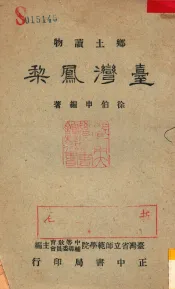 鄉土讀物
臺灣鳳梨
徐伯申編著
臺灣省立師範學院中等教育輔導委員會主編
正中書局印行